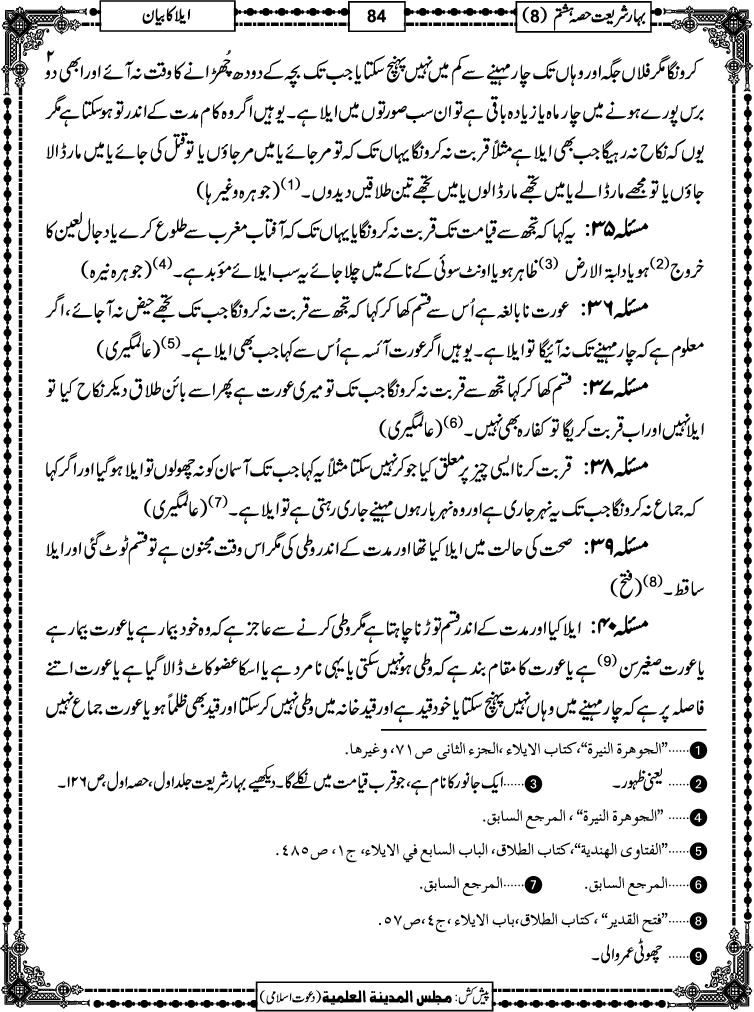 بہارِ شریعت حصہ ہشتم (8)
84
ایلا کا بیان
کرونگا مگر فلاں جگہ اور وہاں تک چار مہینے سے کم میں نہیں پہنچ سکتا یا جب تک بچہ کے دودھ چُھڑانے کا وقت نہ آئے اور ابھی دو ۲
برس پورے ہونے میں چار ماہ یا زیادہ باقی ہے تو ان سب صورتوں میں ایلا ہے۔ یوہیں اگر وہ کام مدت کے اندر تو ہو سکتا ہے مگر
یوں کہ نکاح نہ رہیگا جب بھی ایلا ہے مثلاً قربت نہ کرونگا یہاں تک کہ تو مر جائے یا میں مر جاؤں یا تو قتل کی جائے یا میں مار ڈالا
جاؤں یا تو مجھے مار ڈالے یا میں تجھے مار ڈالوں یا میں تجھے تین طلاقیں دیدوں۔(1) (جوہرہ وغیرہا)
مسئلہ ۳۵: یہ کہا کہ تجھ سے قیامت تک قربت نہ کرونگا یا یہاں تک کہ آفتاب مغرب سے طلوع کرے یا دجال لعین کا
خروج(2) ہو یا دابۃ الارض (3) ظاہر ہو یا اونٹ سوئی کے ناکے میں چلا جائے یہ سب ایلائے مؤبد ہے۔(4) (جوہرہ نیرہ)
مسئلہ ۳۶: عورت نابالغہ ہے اُس سے قسم کھا کر کہا کہ تجھ سے قربت نہ کرونگا جب تک تجھے حیض نہ آ جائے، اگر
معلوم ہے کہ چار مہینے تک نہ آئیگا تو ایلا ہے۔ یوہیں اگر عورت آئسہ ہے اُس سے کہا جب بھی ایلا ہے۔(5) (عالمگیری)
مسئلہ ۳۷: قسم کھا کر کہا تجھ سے قربت نہ کرونگا جب تک تو میری عورت ہے پھر اسے بائن طلاق دیکر نکاح کیا تو
ایلا نہیں اور اب قربت کریگا تو کفارہ بھی نہیں۔(6) (عالمگیری)
مسئلہ ۳۸: قربت کرنا ایسی چیز پر معلق کیا جو کر نہیں سکتا مثلاً یہ کہا جب تک آسمان کو نہ چھولوں تو ایلا ہو گیا اور اگر کہا
کہ جماع نہ کرونگا جب تک یہ نہر جاری ہے اور وہ نہر بارہوں مہینے جاری رہتی ہے تو ایلا ہے۔(7) (عالمگیری)
مسئلہ ۳۹: صحت کی حالت میں ایلا کیا تھا اور مدت کے اندر وطی کی مگر اس وقت مجنون ہے تو قسم ٹوٹ گئی اور ایلا
ساقط۔(8) (فتح)
مسئلہ ۴۰: ایلا کیا اور مدت کے اندر قسم توڑنا چاہتا ہے مگر وطی کرنے سے عاجز ہے کہ وہ خود بیمار ہے یا عورت بیمار ہے
یا عورت صغیر سن (9) ہے یا عورت کا مقام بند ہے کہ وطی ہو نہیں سکتی یا یہی نامرد ہے یا اسکا عضو کاٹ ڈالا گیا ہے یا عورت اتنے
فاصلہ پر ہے کہ چار مہینے میں وہاں نہیں پہنچ سکتا یا خود قید ہے اور قید خانہ میں وطی نہیں کر سکتا اور قید بھی ظلماً ہو یا عورت جماع نہیں
1 ......”الجوهرة النيرة“، كتاب الايلاء، الجزء الثانى ص٧١، وغيرها.
2 ...... یعنی ظہور۔ 3 ......ایک جانور کا نام ہے، جو قربِ قیامت میں نکلے گا۔ دیکھیے بہارِ شریعت جلد اول، حصہ اول، ص۱۲۶۔
4 ......”الجوهرة النيرة“ ، المرجع السابق.
5 ......”الفتاوى الهندية“، كتاب الطلاق، الباب السابع في الايلاء، ج١، ص٤٨٥.
6 ......المرجع السابق. 7 ......المرجع السابق.
8 ......”فتح القدير“ ، كتاب الطلاق، باب الايلاء ، ج٤، ص٥٧.
9 ...... چھوٹی عمر والی۔
پیش کش: مجلس المدينة العلمية (دعوتِ اسلامی)